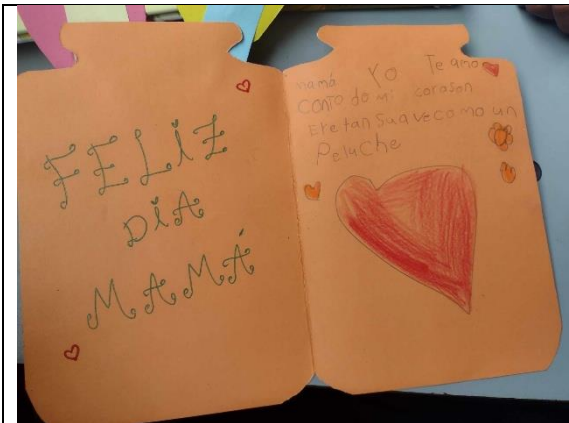 FELIZ
DÍA
MAMÁ
mamá Yo Te amo
CONTO do mi corason
Eretan Suave como un
Peluche